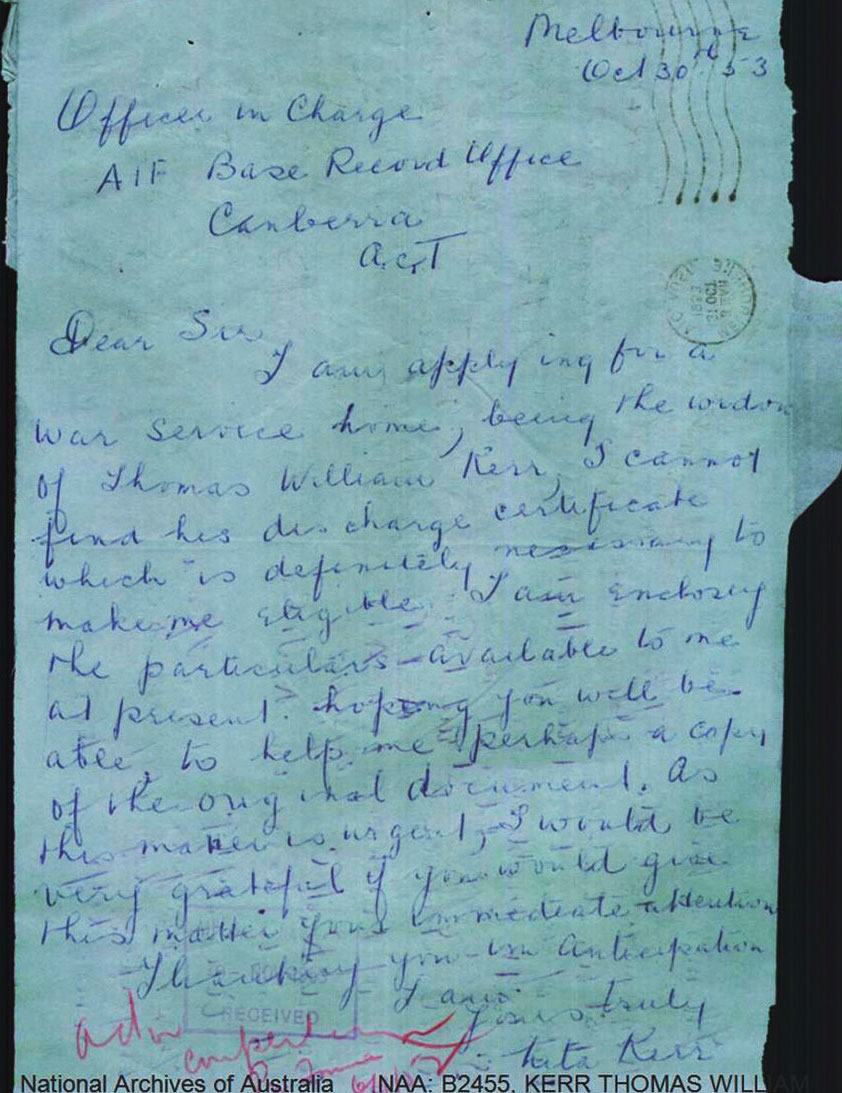 Melbourne
Oct 30th 53
Officer in Charge
AIF Base Record Office
Canberra
A.C.T
Dear Sir
I am apply ing for a
war service home, being the widow
of Thomas William Kerr, I cannot
find his dis charge certificate
which is definitely necessary to
make me eligible. I am enclosing
the particulars available to me
at present. hoping you will be
able to help me perhaps a copy
of the original document. As
this matter is urgent, I would be
very grateful if you would give
this matter your immediate attention
Thanking you in anticipation
I am
Yours truly
Kerr
RECEIVED
National Archives of Australia NAA: B2455, KERR THOMAS WILLIAM